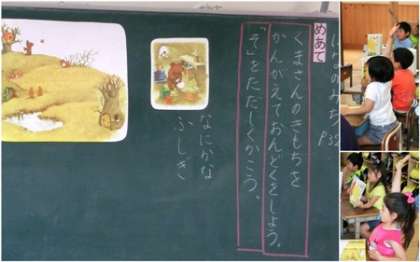 はなのみち
めあて
くまさんのきもちを
かんがえておんどくをしよう。
「て」をただしくかこう。
なにかな
ふしぎ